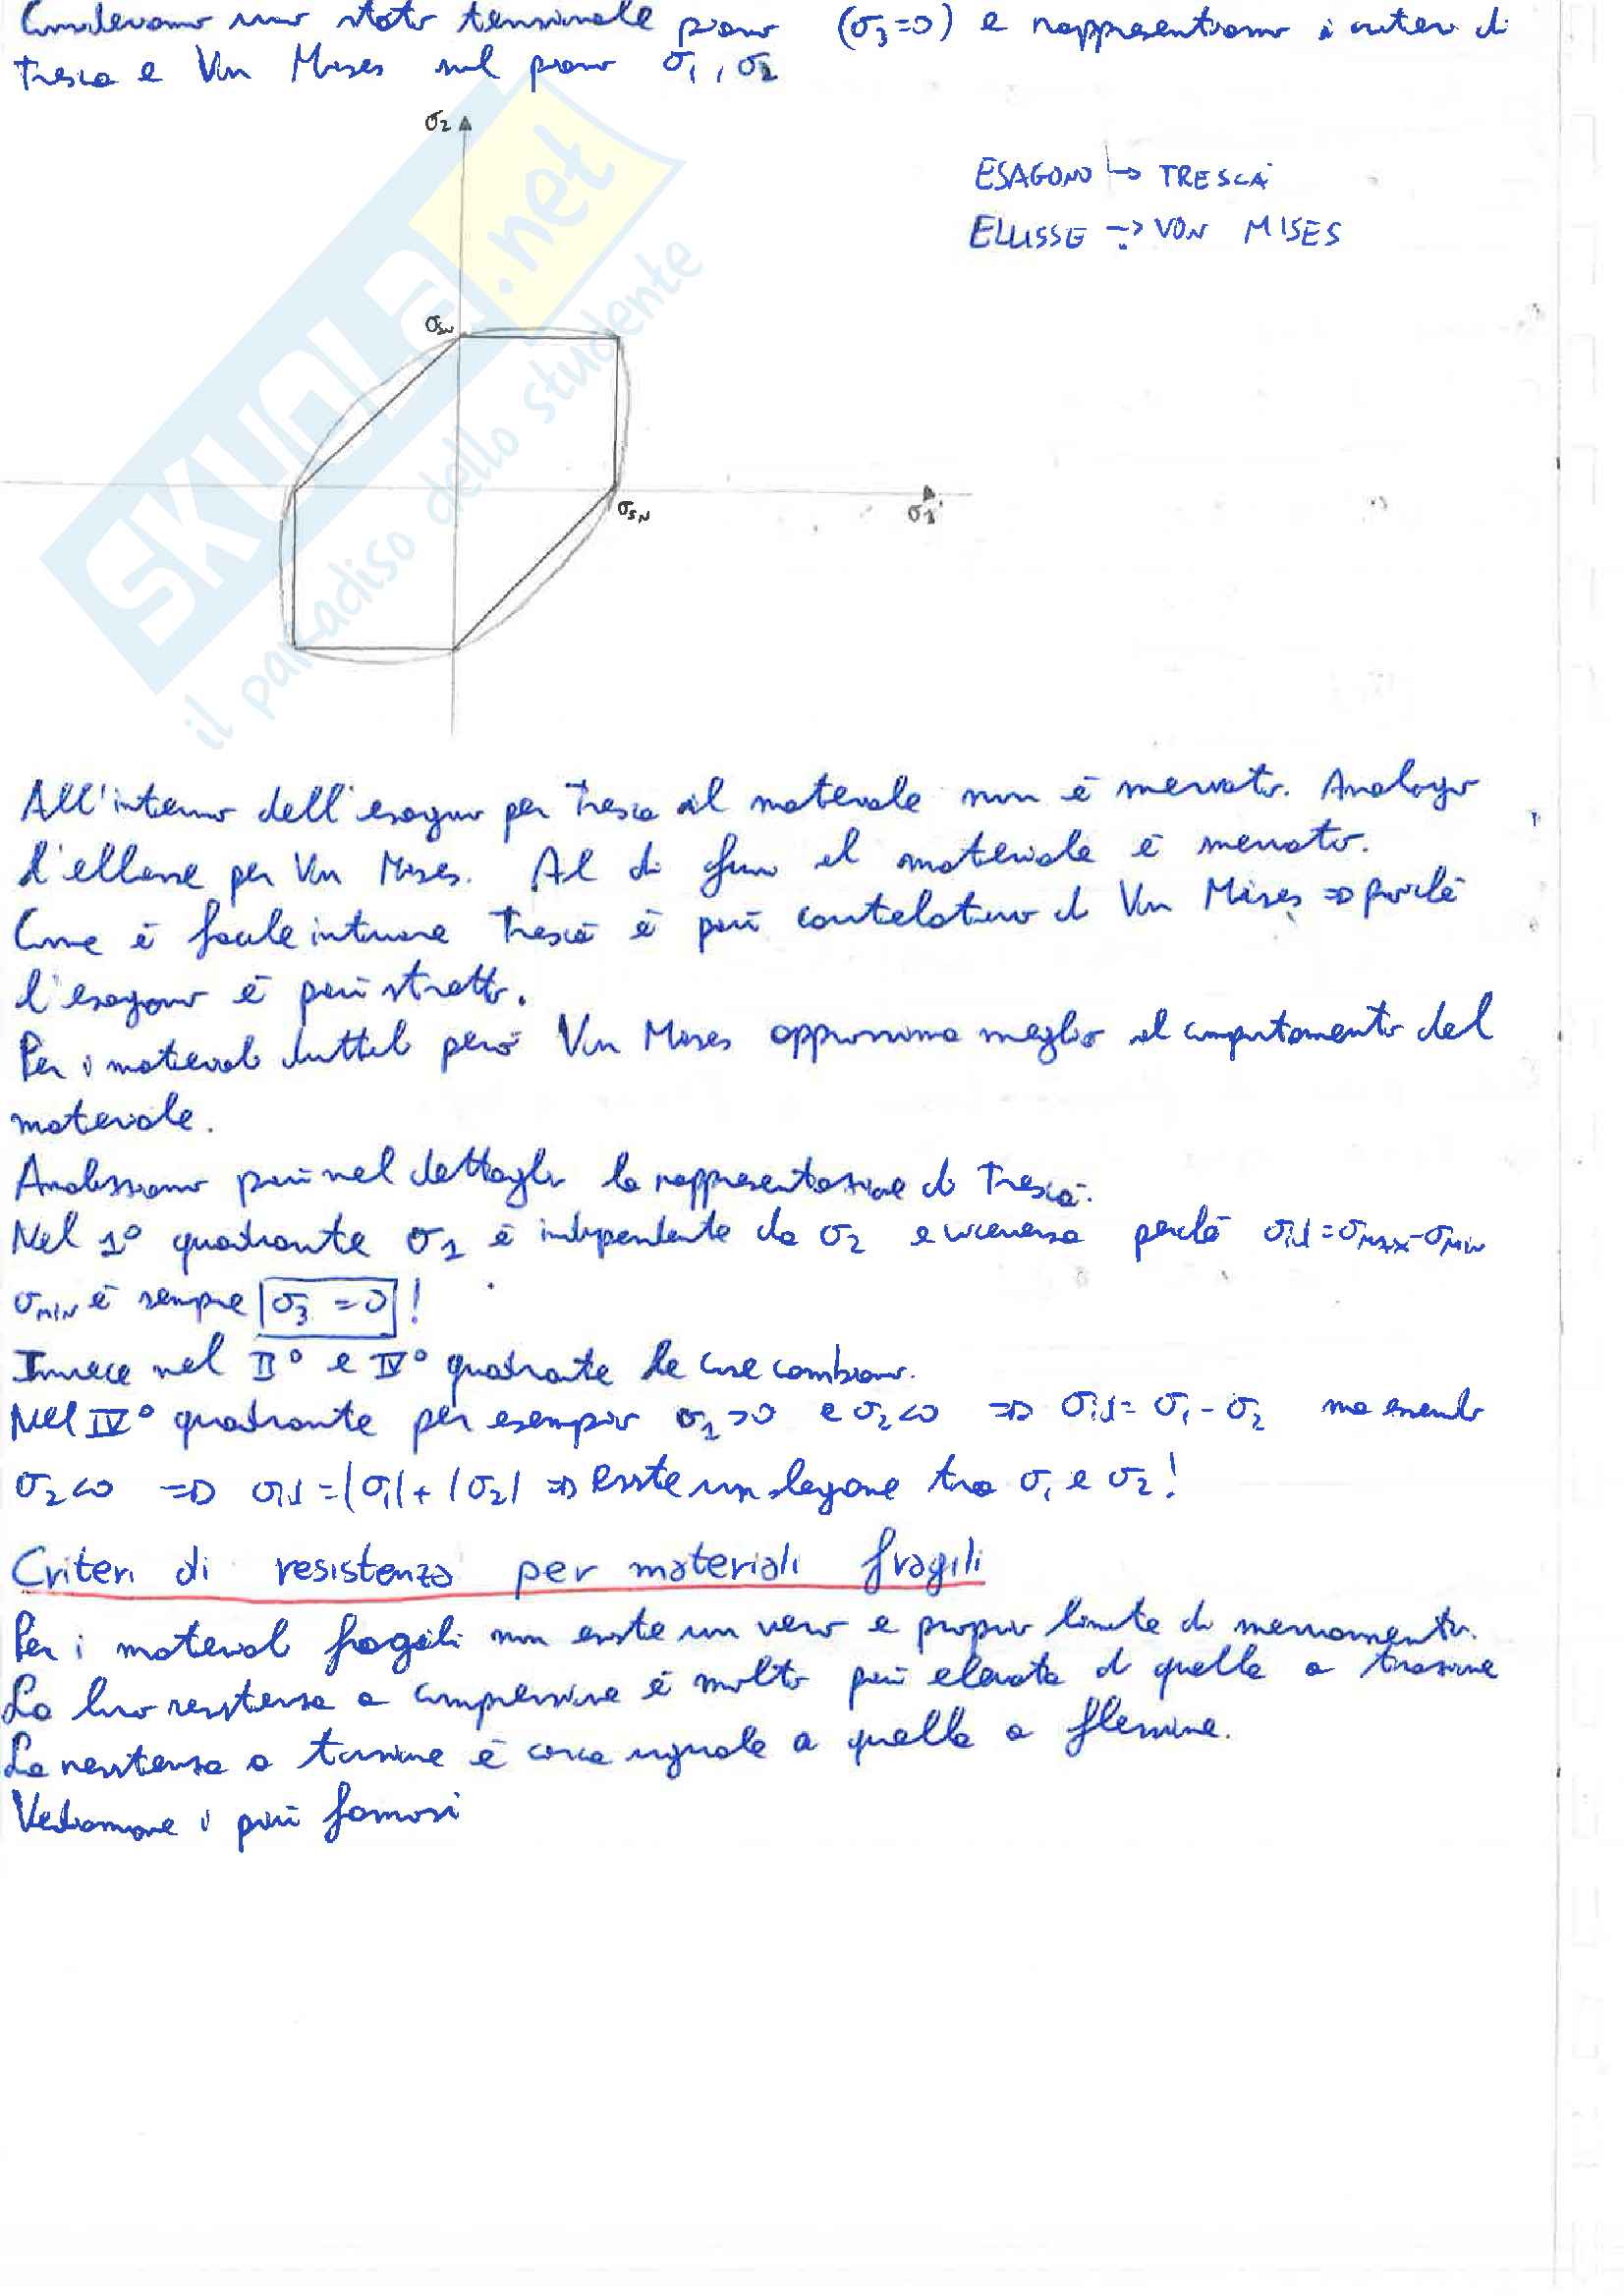 Consideriamo uno stato tensionale piano (σ3=0) e rappresentiamo i criteri di
Tresca e Von Mises sul piano σ1, σ2
σ2
ESAGONO → TRESCA
ELLISSE → VON MISES
SKUOLA.net
il paradiso dello studente
σSN
σSN
σ1
All'interno dell'esagono per Tresca il materiale non è snervato. Analogo
l'ellisse per Von Mises. Al di fuori il materiale è snervato.
Come è facile intuire Tresca è più cautelativo di Von Mises => poiché
l'esagono è più stretto.
Per i materiali duttili però Von Mises approssima meglio il comportamento del
materiale.
Analizziamo più nel dettaglio la rappresentazione di Tresca.
Nel 1° quadrante σ1 è indipendente da σ2 e viceversa perché σid=σMAX-σMIN
σMIN è sempre σ3 = 0 !
Invece nel II° e IV° quadrante le cose cambiano.
Nel IV° quadrante per esempio σ1>0 e σ2<0 => σid= σ1-σ2 ma essendo
σ2<0 => σid=|σ1|+|σ2| => Esiste un legame tra σ1 e σ2!
Criteri di resistenza per materiali fragili
Per i materiali fragili non esiste un vero e proprio limite di snervamento.
La loro resistenza a compressione è molto più elevata di quella a trazione
La resistenza a torsione è circa uguale a quella a flessione.
Vediamone i più famosi